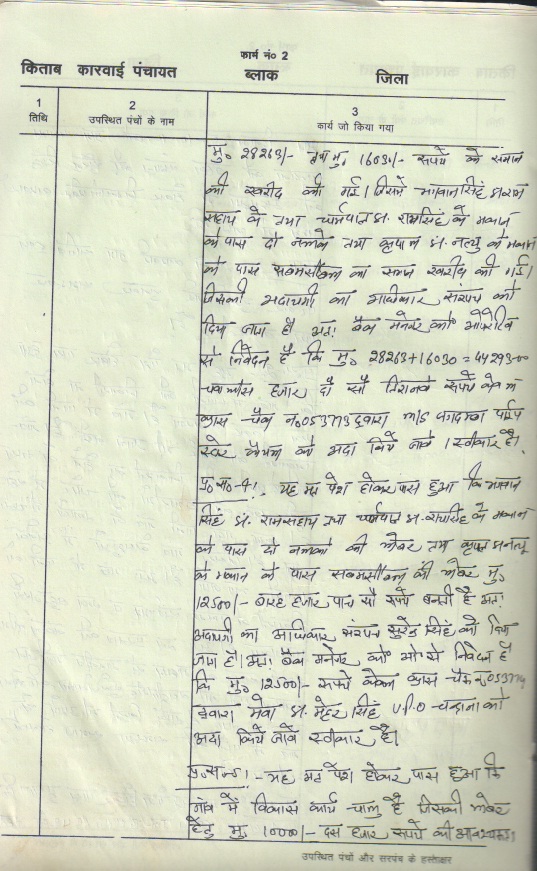 फार्म नं० 2
किताब कारवाई पंचायत ब्लाक जिला
1 2 3
तिथि उपस्थित पंचों के नाम कार्य जो किया गया
मु० 28263/- तथा मु० 16030/- रूपये के समान
की खरीद की गई। जिसमें भगवान सिंह
सहाय के तथा रामसिंह के मकान
के पास दो नलके तथा कृपाल नत्थु के मकान
के पास सबमर्सीबल का समान खरीद की गई।
जिसकी अदायगी का अधिकार सरपंच को
दिया जाता है अतः बैंक मनेजर को
से निवेदन है कि मु० 28263+16030=44293-00
हजार दो सौ तिरानवे रूपये केवल
क्रास चैक न० 053773 द्वारा M/S पाईप
स्टोर कैथल को अदा किये जावे। स्वीकार है।
प्र० न०-4!. यह मद पेश होकर पास हुआ कि भगवान
सिंह रामसहाय तथा रामसिंह के मकान
के पास दो नलको की लेबर तथा कृपाल नत्थु
के मकान के पास सबमर्सीबल की लेबर मु०
12500/- बारह हजार पांच सौ रूपये बनती है अतः
अदायगी का अधिकार सरपंच सुरेन्द्र सिंह को दिया
जाता है। अतः बैंक मनेजर को निवेदन है
कि मु० 12500/- रूपये केवल क्रास चैक न० 053774
द्वारा मेवा मेहर सिंह V.P.O चन्दाना को
अदा किये जावे स्वीकार है।
यह मद पेश होकर पास हुआ कि
गांव में विकास कार्य चालु है जिसकी लेबर
हेतु मु० 10000/- दस हजार रूपये की आवश्यकता
उपस्थित पंचों और सरपंच के हस्ताक्षर